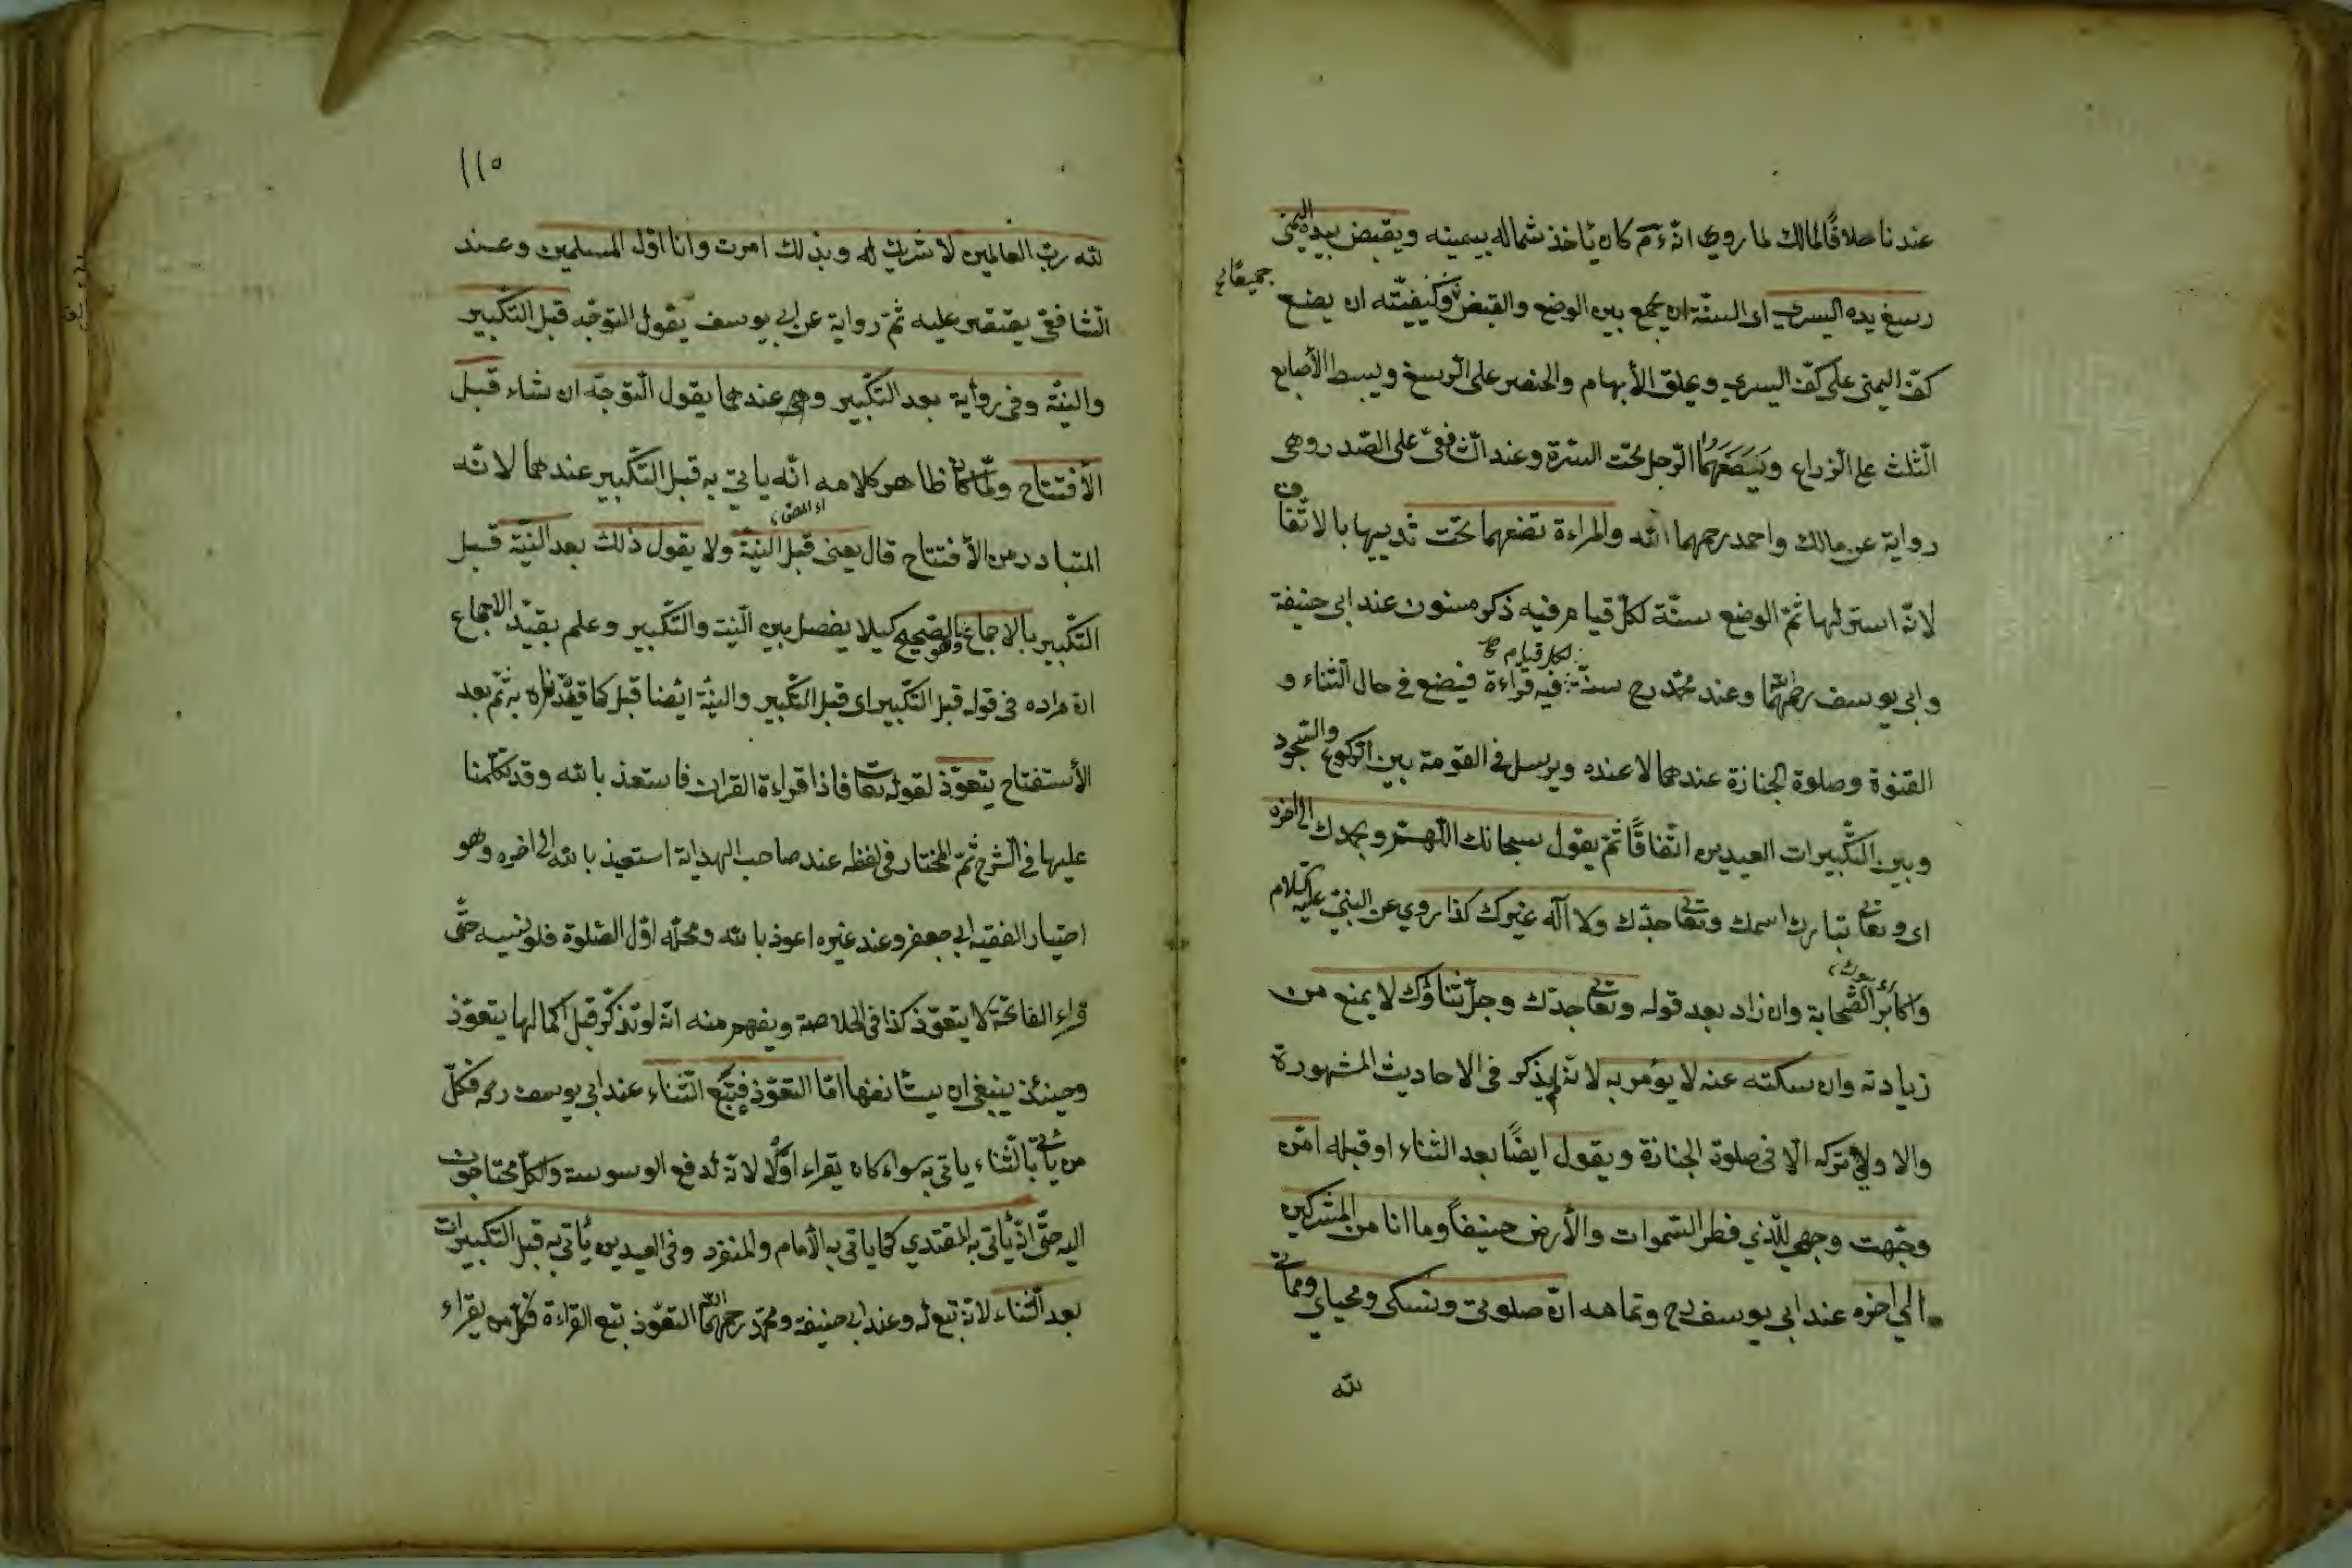 عندنا خلافًا لمالك لما روي انه ءم كان ياخذ شماله بيمينه ويقبض بيده اليمنى
رسغ يده اليسرى اى السنّة ان يجمع بين الوضع والقبض جميعًا وكيفيّته ان يضع
كفّ اليمنى على كفّ اليسرى ويحلق الأبهام والخنصر على الرسغ ويبسط الأصابع
الثلث على الزراع ويضعهما الرجل تحت السرّة وعند الشافعى على الصّدر وهى
رواية عن مالك واحمد رحمهما الله والمراءة تضعهما تحت ثدييها بالاتّفاق
لانّه استر لها ثمّ الوضع سنّة لكلّ قيام فيه ذكر مسنون عند ابى حنيفة
وابى يوسف رحمهما الله وعند محمّد رح سنّة لكل قيام فيه قراءة فيضع فى حال الثناء و
القنوة وصلوة الجنازة عندهما لا عنده ويرسل فى القومة بين الركوع والسّجود
وبين التكبيرات العيدين اتّفاقًا ثمّ يقول سبحانك اللّهمّ وبحمدك الى اخره
اى وتعالى تبارك اسمك وتعالى جدّك ولا آله غيرك كذا روي عن النبيّ عليه السّلام
واكابر الصّحابة وان زاد بعد قوله وتعالى جدّك وجلّ ثناؤك لا يمنع من
زيادته وان سكته عنه لا يؤمر به لانّه لم يذكر فى الاحاديث المشهورة
والا ولى تركه الّا فى صلوة الجنازة ويقول ايضًا بعد الثناء او قبله انّى
وجّهت وجهي للّذي فطر السّموات والأرض حنيفاً وما انا من المشركين
الي اخره عند ابى يوسف رح وتمامه انّ صلوتى ونسكى ومحياي ومماتى
لله
١١٥
لله ربّ العالمين لا شريك له وبذلك امرت وانا اوّل المسلمين وعند
الشافعىّ يقتصر عليه ثمّ رواية عن ابي يوسف يقول التوجّه قبل التكبير
والنيّة وفى رواية بعد التكبير وعندهما يقول التوجّه ان شاء قبل
الأفتتاح ولمّا كان ظاهر كلامه انّه ياتى به قبل التكبير عندهما لانّه
المتبادر من الأفتتاح قال يعنى قبل النيّة ولا يقول ذلك بعد النيّة قبل
التكبير بالاجماع وهو الصّحيح كيلا يفصل بين النّيت والتّكبير وعلم بقيّد الاجماع
ان مراده فى قوله قبل التكبير اى قبل التكبير والنيّة ايضا قبل كما قيّدناه به ثمّ بعد
الأستفتاح يتعوّذ لقوله تعالى فاذا قراءة القران فاستعذ بالله وقد تكلّمنا
عليها فى الشرح ثمّ المختار فى لفظه عند صاحب الهداية استعيذ بالله الى اخره وهو
اختيار الفقيه ابى جعفر وعند غيره اعوذ بالله ومحلّه اوّل الصّلوة فلو نسيه حتّى
قراء الفاتحة لا يتعوّذ كذا فى الخلاصة ويفهم منه انّه لو تذكّر قبل اكمالها يتعوّذ
وحينئذ ينبغى ان يستأنفها امّا التعوّذ فتبع الثّناء عند ابى يوسف رحمه فكلّ
من ياتى بالثناء ياتى به سواء كان يقراء اوّلًا لانّه لدفع الوسوسة والكلّ محتاجون
اليه حتّى انّه يأتى به المقتدي كما ياتى به الأمام والمنفرد وفى العيدين يأتى به قبل التكبيرات
بعد الثناء لانّه تبع له وعند ابى حنيفة ومحمّد رحمهما الله التعوّذ تبع القراءة فكلّ من يقراء